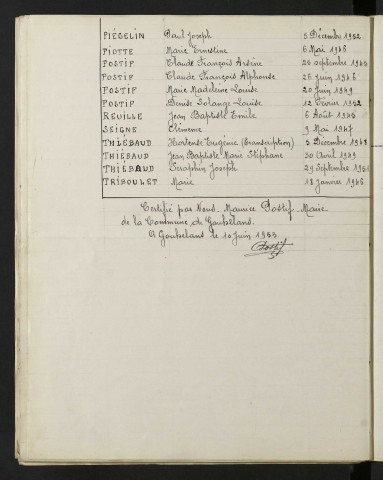 PIÉGELIN Paul Joseph 5 Décembre 1952
PIOTTE Marie Ernestine 6 Mai 1946
POSTIF Claude François Arsène 26 septembre 1945
POSTIF Claude François Alphonse 26 Juin 1946
POSTIF Marie Madeleine Louise 20 Juin 1949
POSTIF Denise Solange Louise 12 Février 1952
REUILLE Jean Baptiste Emile 6 Août 1945
SEIGNE Clémence 9 Mai 1947
THIEBAUD Hortense Eugénie (transcription) 3 Décembre 1949
THIEBAUD Jean Baptiste Marie Stéphane 30 Avril 1949
THIEBAUD Séraphin Joseph 29 Septembre 1951
TRIBOULET Marie 18 Janvier 1946
Certifié par Nous. Maurice Postif. Maire
de la Commune de Gouhelans.
A Gouhelans le 10 Juin 1953
Postif